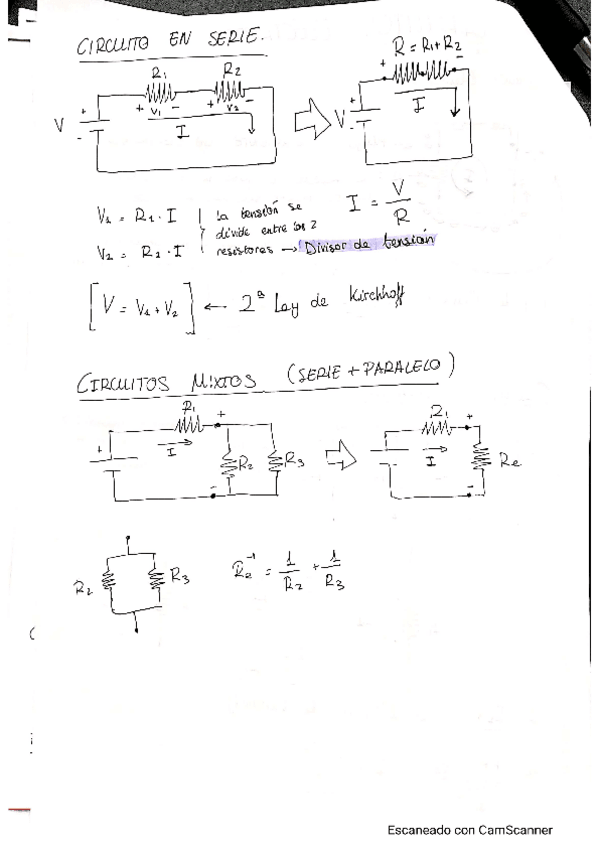 CIRCUITO EN SERIE.
R = R1 + R2
R1 R2
+ -
+ V1 - + V2 -
V + - I
V + - I
V1 = R1 · I
la tensión se
divide entre los 2
resistores → Divisor de tensión
V2 = R2 · I
I = V / R
[V = V1 + V2] ← 2ª Ley de Kirchhoff
CIRCUITOS MIXTOS (SERIE + PARALELO)
R1 +
+ I R2 R3
-
R1 +
+ I Re
-
R2 R3
Re⁻¹ = 1/R2 + 1/R3
Escaneado con CamScanner